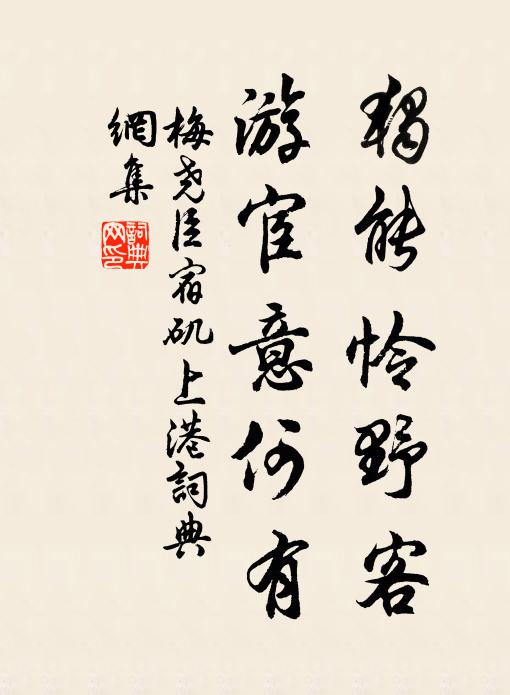 獨能怜野客
游宦意何有
梅尧臣宿矶上港詞典
網集
詞典
网印